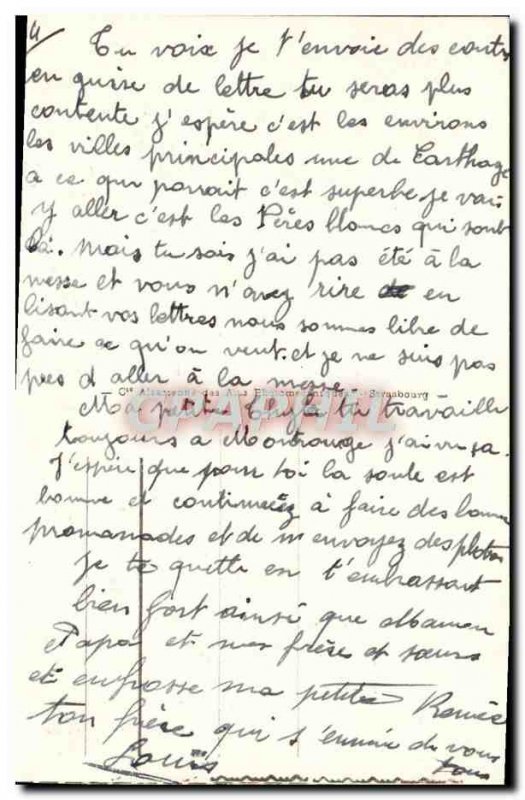 4/ Tu voix je t'envoie des carts
en guise de lettre tu seras plus
contente j'espère c'est les environs
les villes principales une de Carthage
a ce qui parrait c'est superbe je vai
y aller c'est les Pères blancs qui sont
là. Mais tu sais j'ai pas été à la
messe et vous m'avez rire de en
lisant vos lettres nous sommes libre de
faire ce qu'on veut. et je ne suis pas
pres d aller à la messe.
Cie Alsacienne des Arts Photomécaniques, Strasbourg
CPAPHIL
Moi petite tu travaille
toujours a Montrouge j'ai vu sa.
J'espère que pour toi la santé est
bonne et continuez à faire des bonnes
promanades et de m'envoyez des photos
je te quitte en t'embrassant
bien fort ainsi que Maman
Papa et mes frère et sœurs
et enbrasse ma petite Renée
ton frère qui s'ennuie de vous
tous
Louis